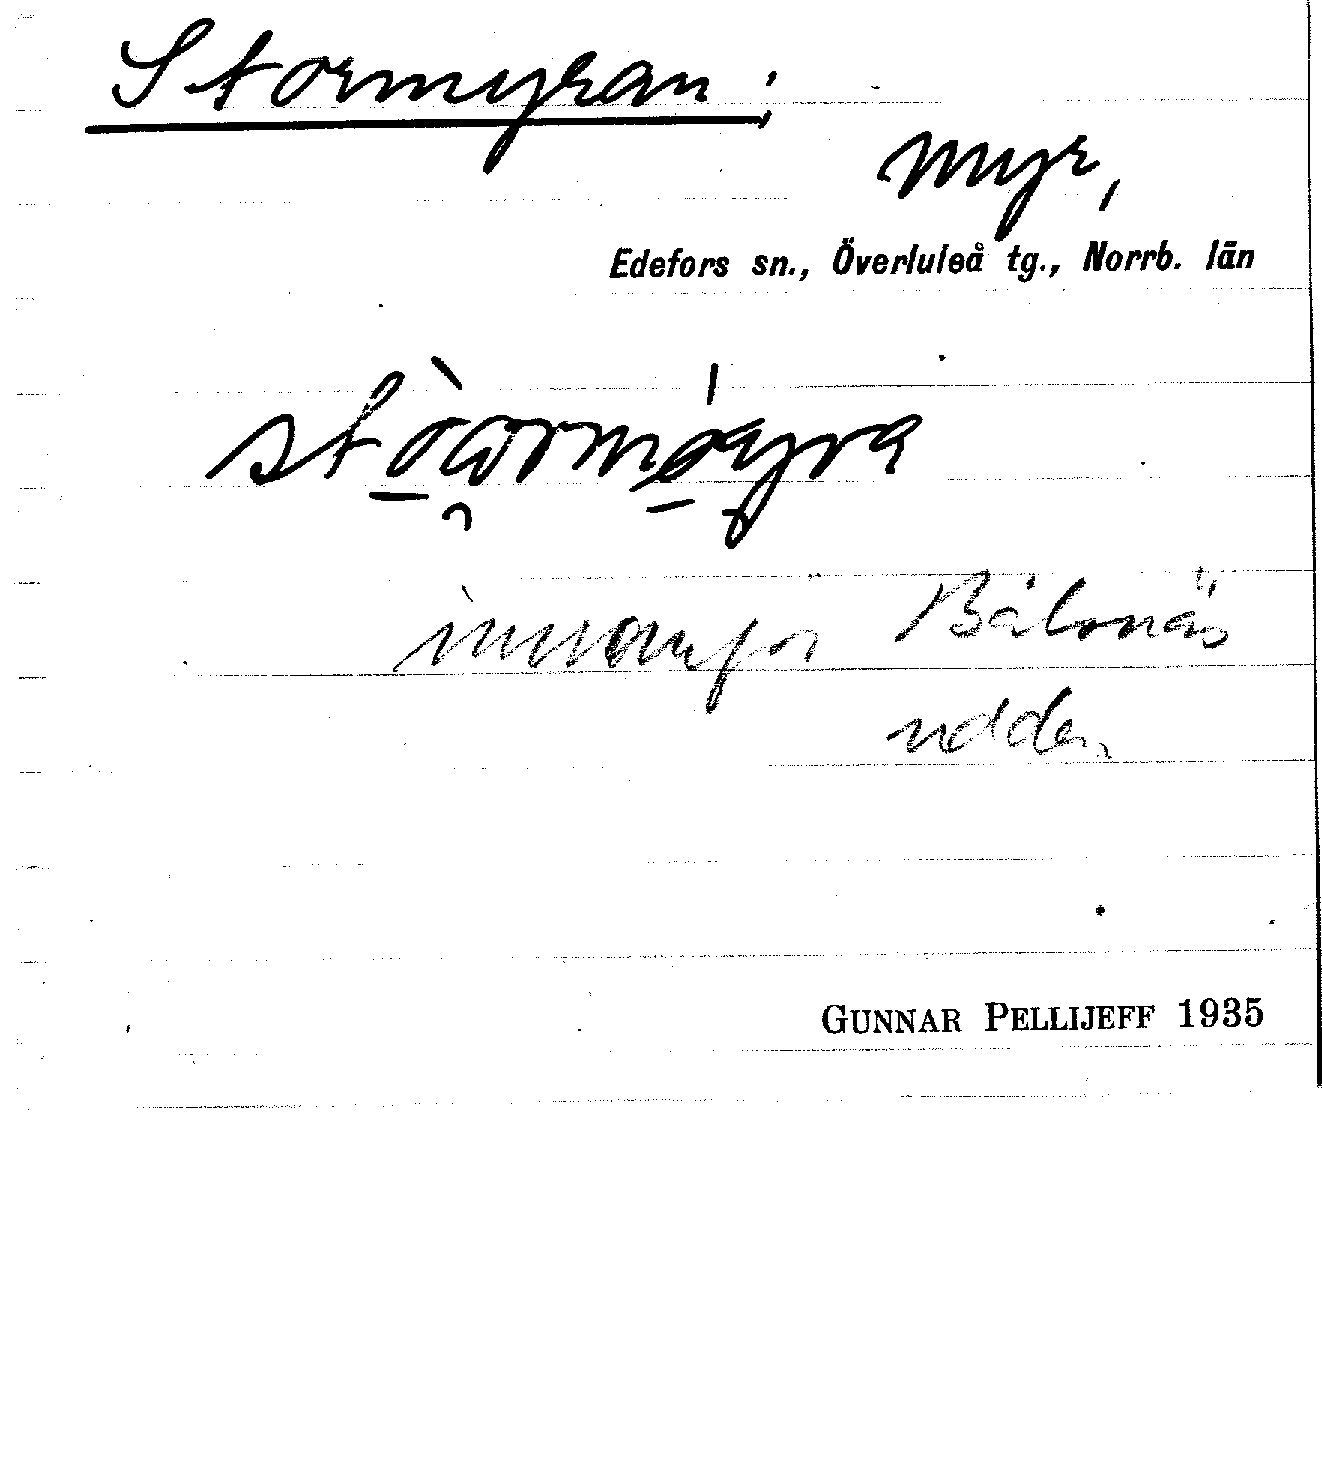 Stormyran;
myr,
Edefors sn., Överluleå tg., Norrb. län
innanför
udden
GUNNAR PELLIJEFF 1935